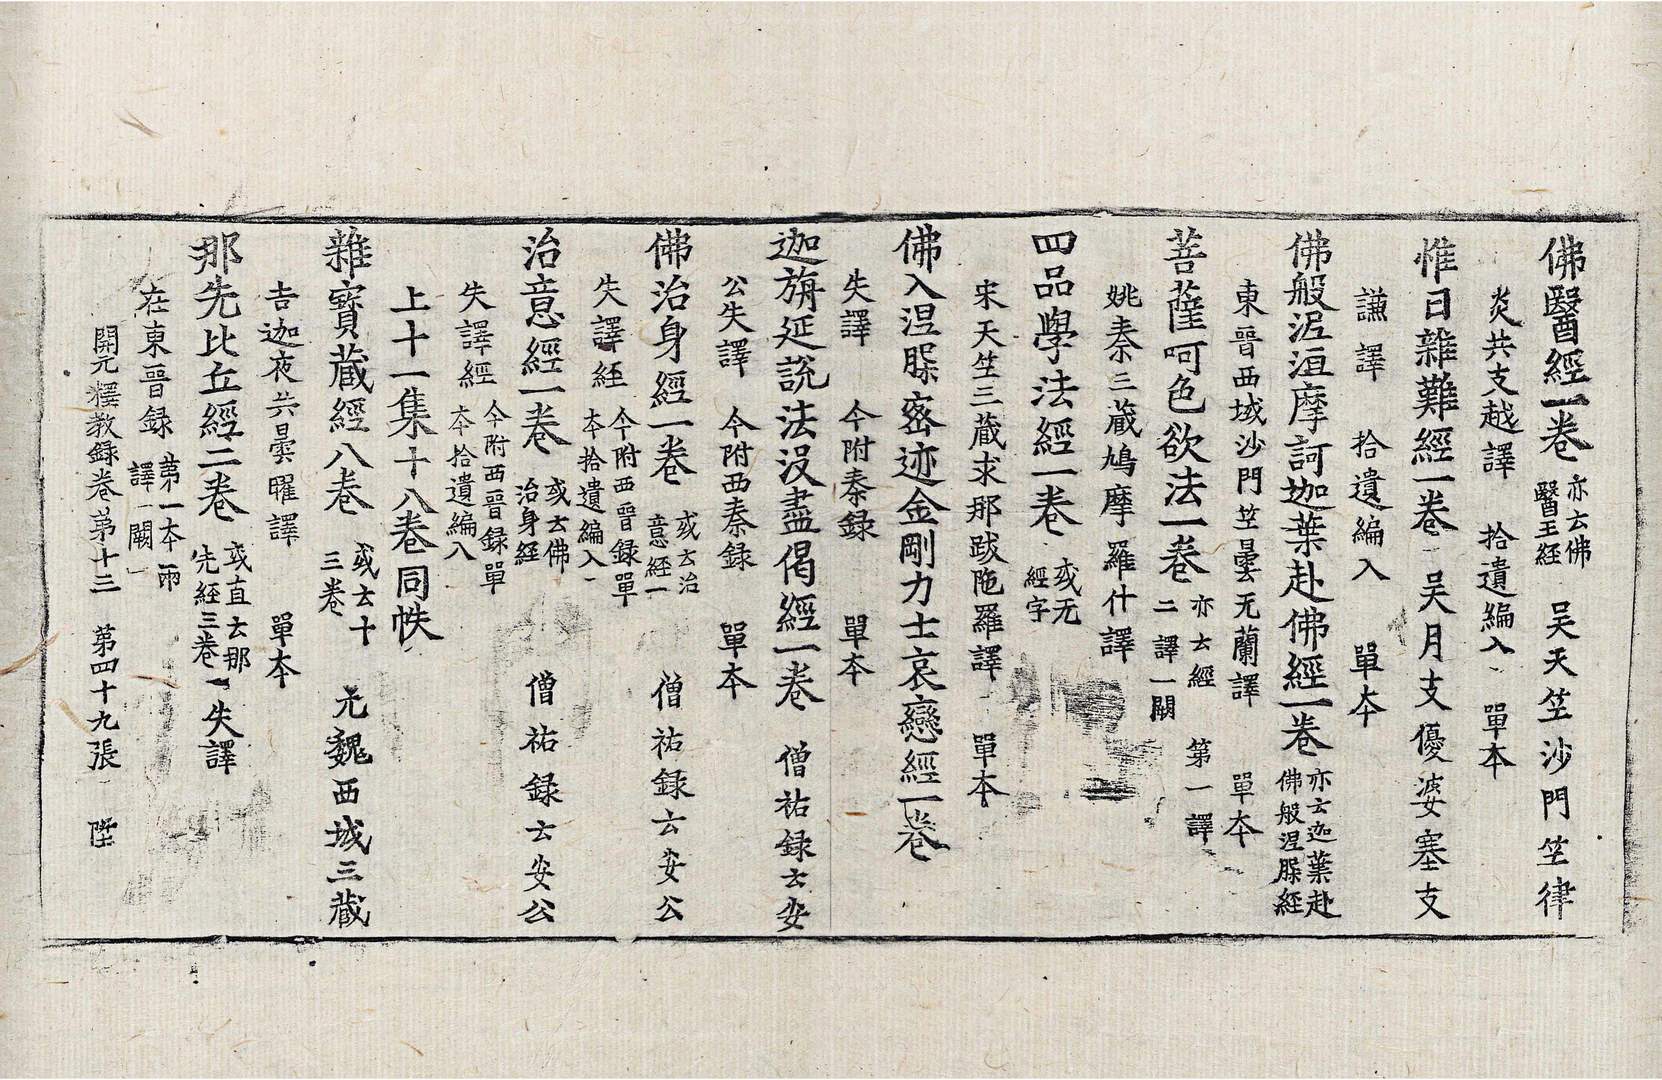 佛醫經一卷 亦云佛醫王經 吴天竺沙門竺律
炎共支越譯 拾遺編入 單本
惟日雜難經一卷 吴月支優婆塞支
謙譯 拾遺編入 單本
佛般泥洹摩訶迦葉赴佛經一卷 亦云迦葉赴佛般涅槃經
東晉西域沙門竺曇无蘭譯 單本
菩薩呵色欲法一卷 亦云經二譯一闕 第一譯
姚秦三藏鳩摩羅什譯
四品學法經一卷 或无經字
宋天竺三藏求那跋陁羅譯 單本
佛入涅槃宻迹金剛力士哀戀經一卷
失譯 今附秦録 單本
迦旃延說法没盡偈經一卷 僧祐録云安
公失譯 今附西秦録 單本
佛治身經一卷 或云治意經 僧祐録云安公
失譯經 今附西晉録單本拾遺編入
治意經一卷 或云佛治身經 僧祐録云安公
失譯經 今附西晉録單本拾遺編入
上十一集十八卷同帙
雜寶藏經八卷 或云十三卷 元魏西域三藏
吉迦夜共曇曜譯 單本
那先比丘經二卷 或直云那先經三卷 失譯
在東晉録 第一本兩譯一闕
開元釋教録卷第十三 第四十九張 陞